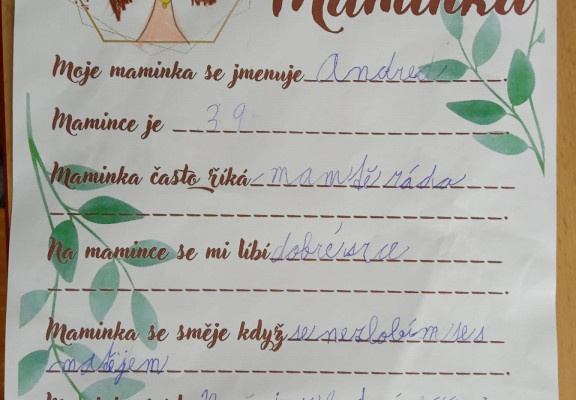 Maminka
Moje maminka se jmenuje Andrea.
Mamince je 39.
Maminka často říká mam tě ráda
Na mamince se mi líbí dobré srce
Maminka se směje když se nezlobím se s
matějem